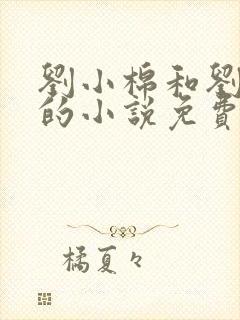 劉小棉和劉
的小說免費
橘夏々